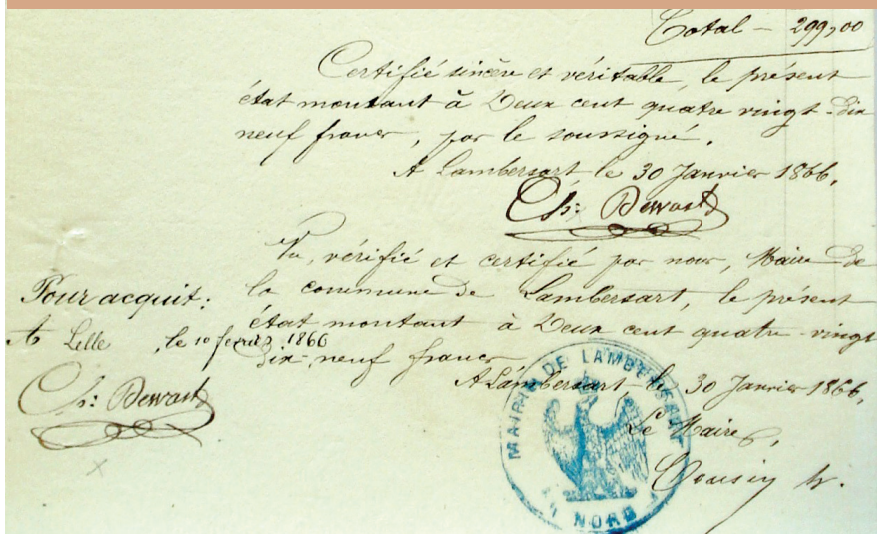 Total — 299,00
Certifié sincère et véritable, le présent
état montant à Deux cent quatre vingt-dix
neuf francs, par le soussigné.
A Lambersart, le 30 Janvier 1866,
Ch: Dewast
Vu, vérifié et certifié par nous, Maire de
la commune de Lambersart, le présent
état montant à Deux cent quatre-vingt
dix-neuf francs
A Lambersart, le 30 Janvier 1866,
Le Maire,
Pour acquit:
A Lille, le 10 février 1866
Ch: Dewast
MAIRIE DE LAMBERSART
NORD